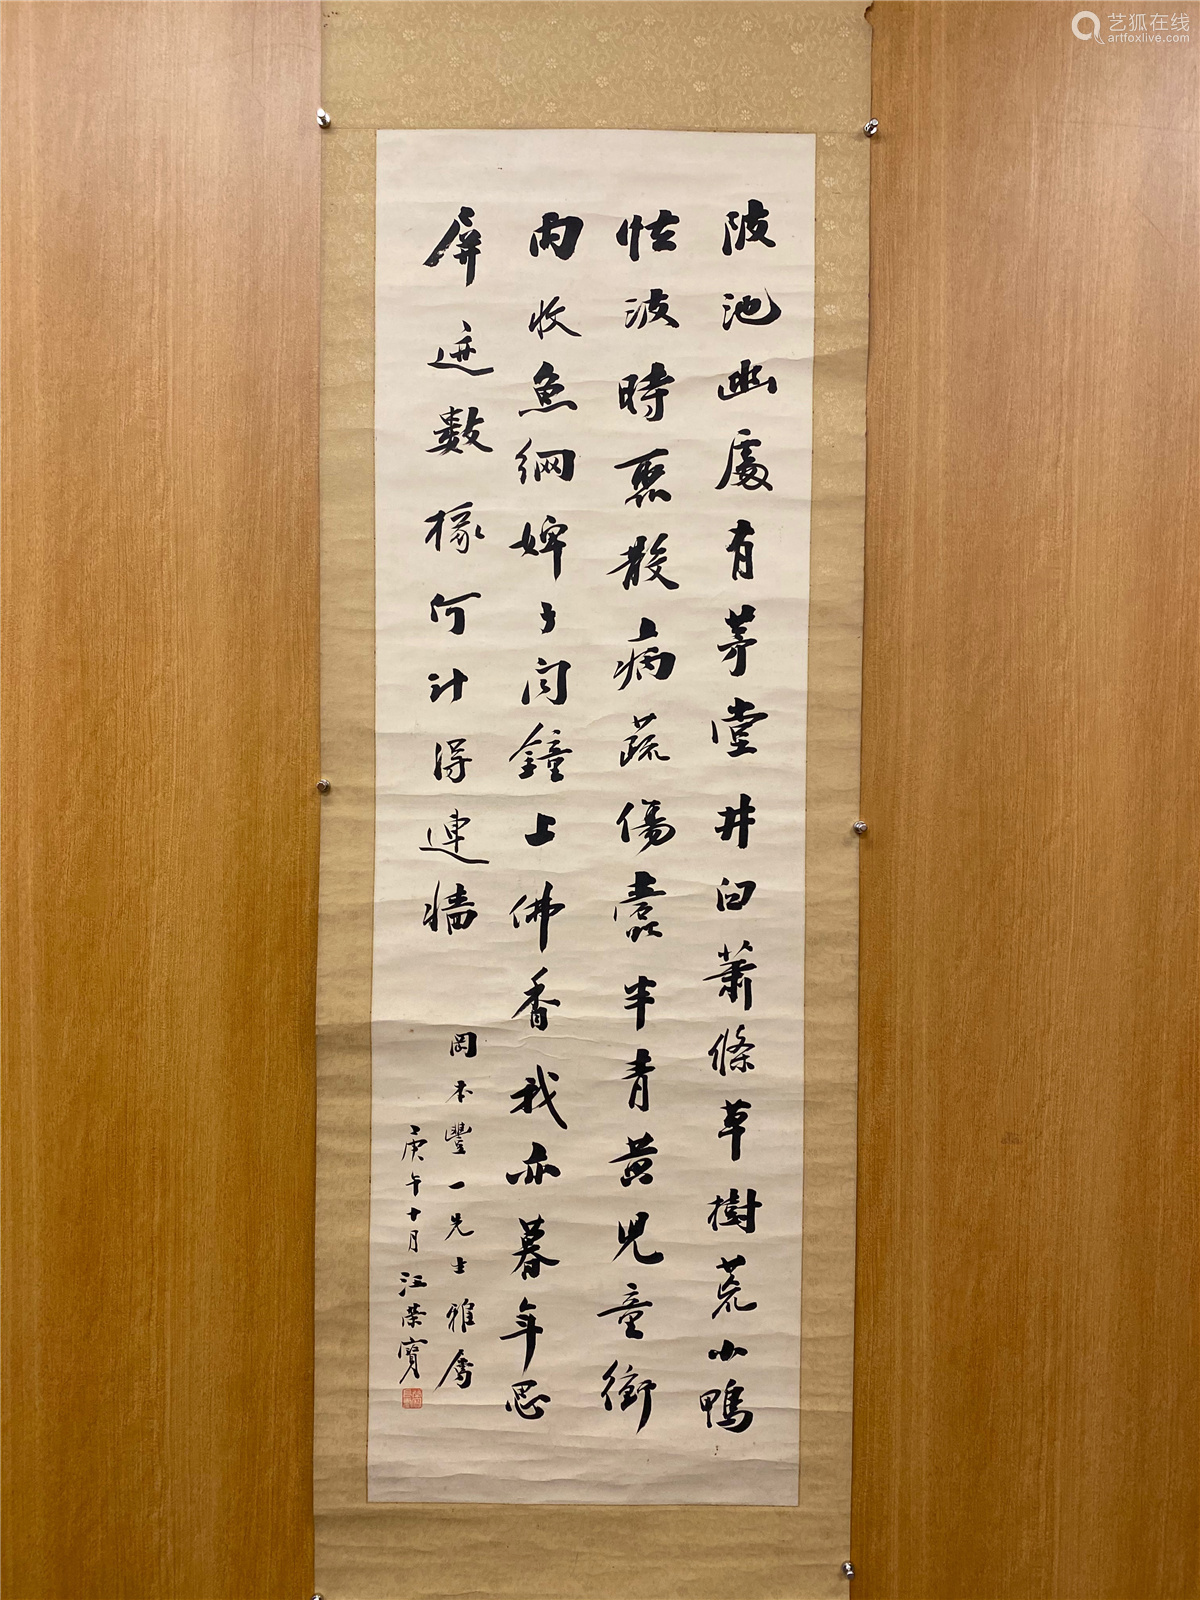 陂池幽處有茅堂井臼蕭條草樹荒小鴨
怯波時聚散病蔬傷蠹半青黃兒童衝
雨收魚網婢子聞鐘上佛香我亦暮年思
屏迹數椽何計得連牆
岡本豐一先生雅屬
庚午十月汪榮寶
艺狐在线
artfoxlive.com